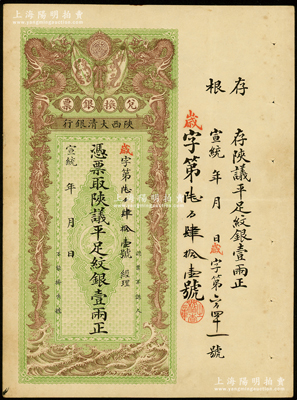 上海陽明拍賣有限公司
兌換銀票
陝西大清銀行
歲字第陸百肆拾壹號 經理
憑票取陝議平足紋銀壹兩正
宣統 年 月 日
存根
存陝議平足紋銀壹兩正
宣統 年 月 日歲字第六百四十一號
歲字第陸百肆拾壹號